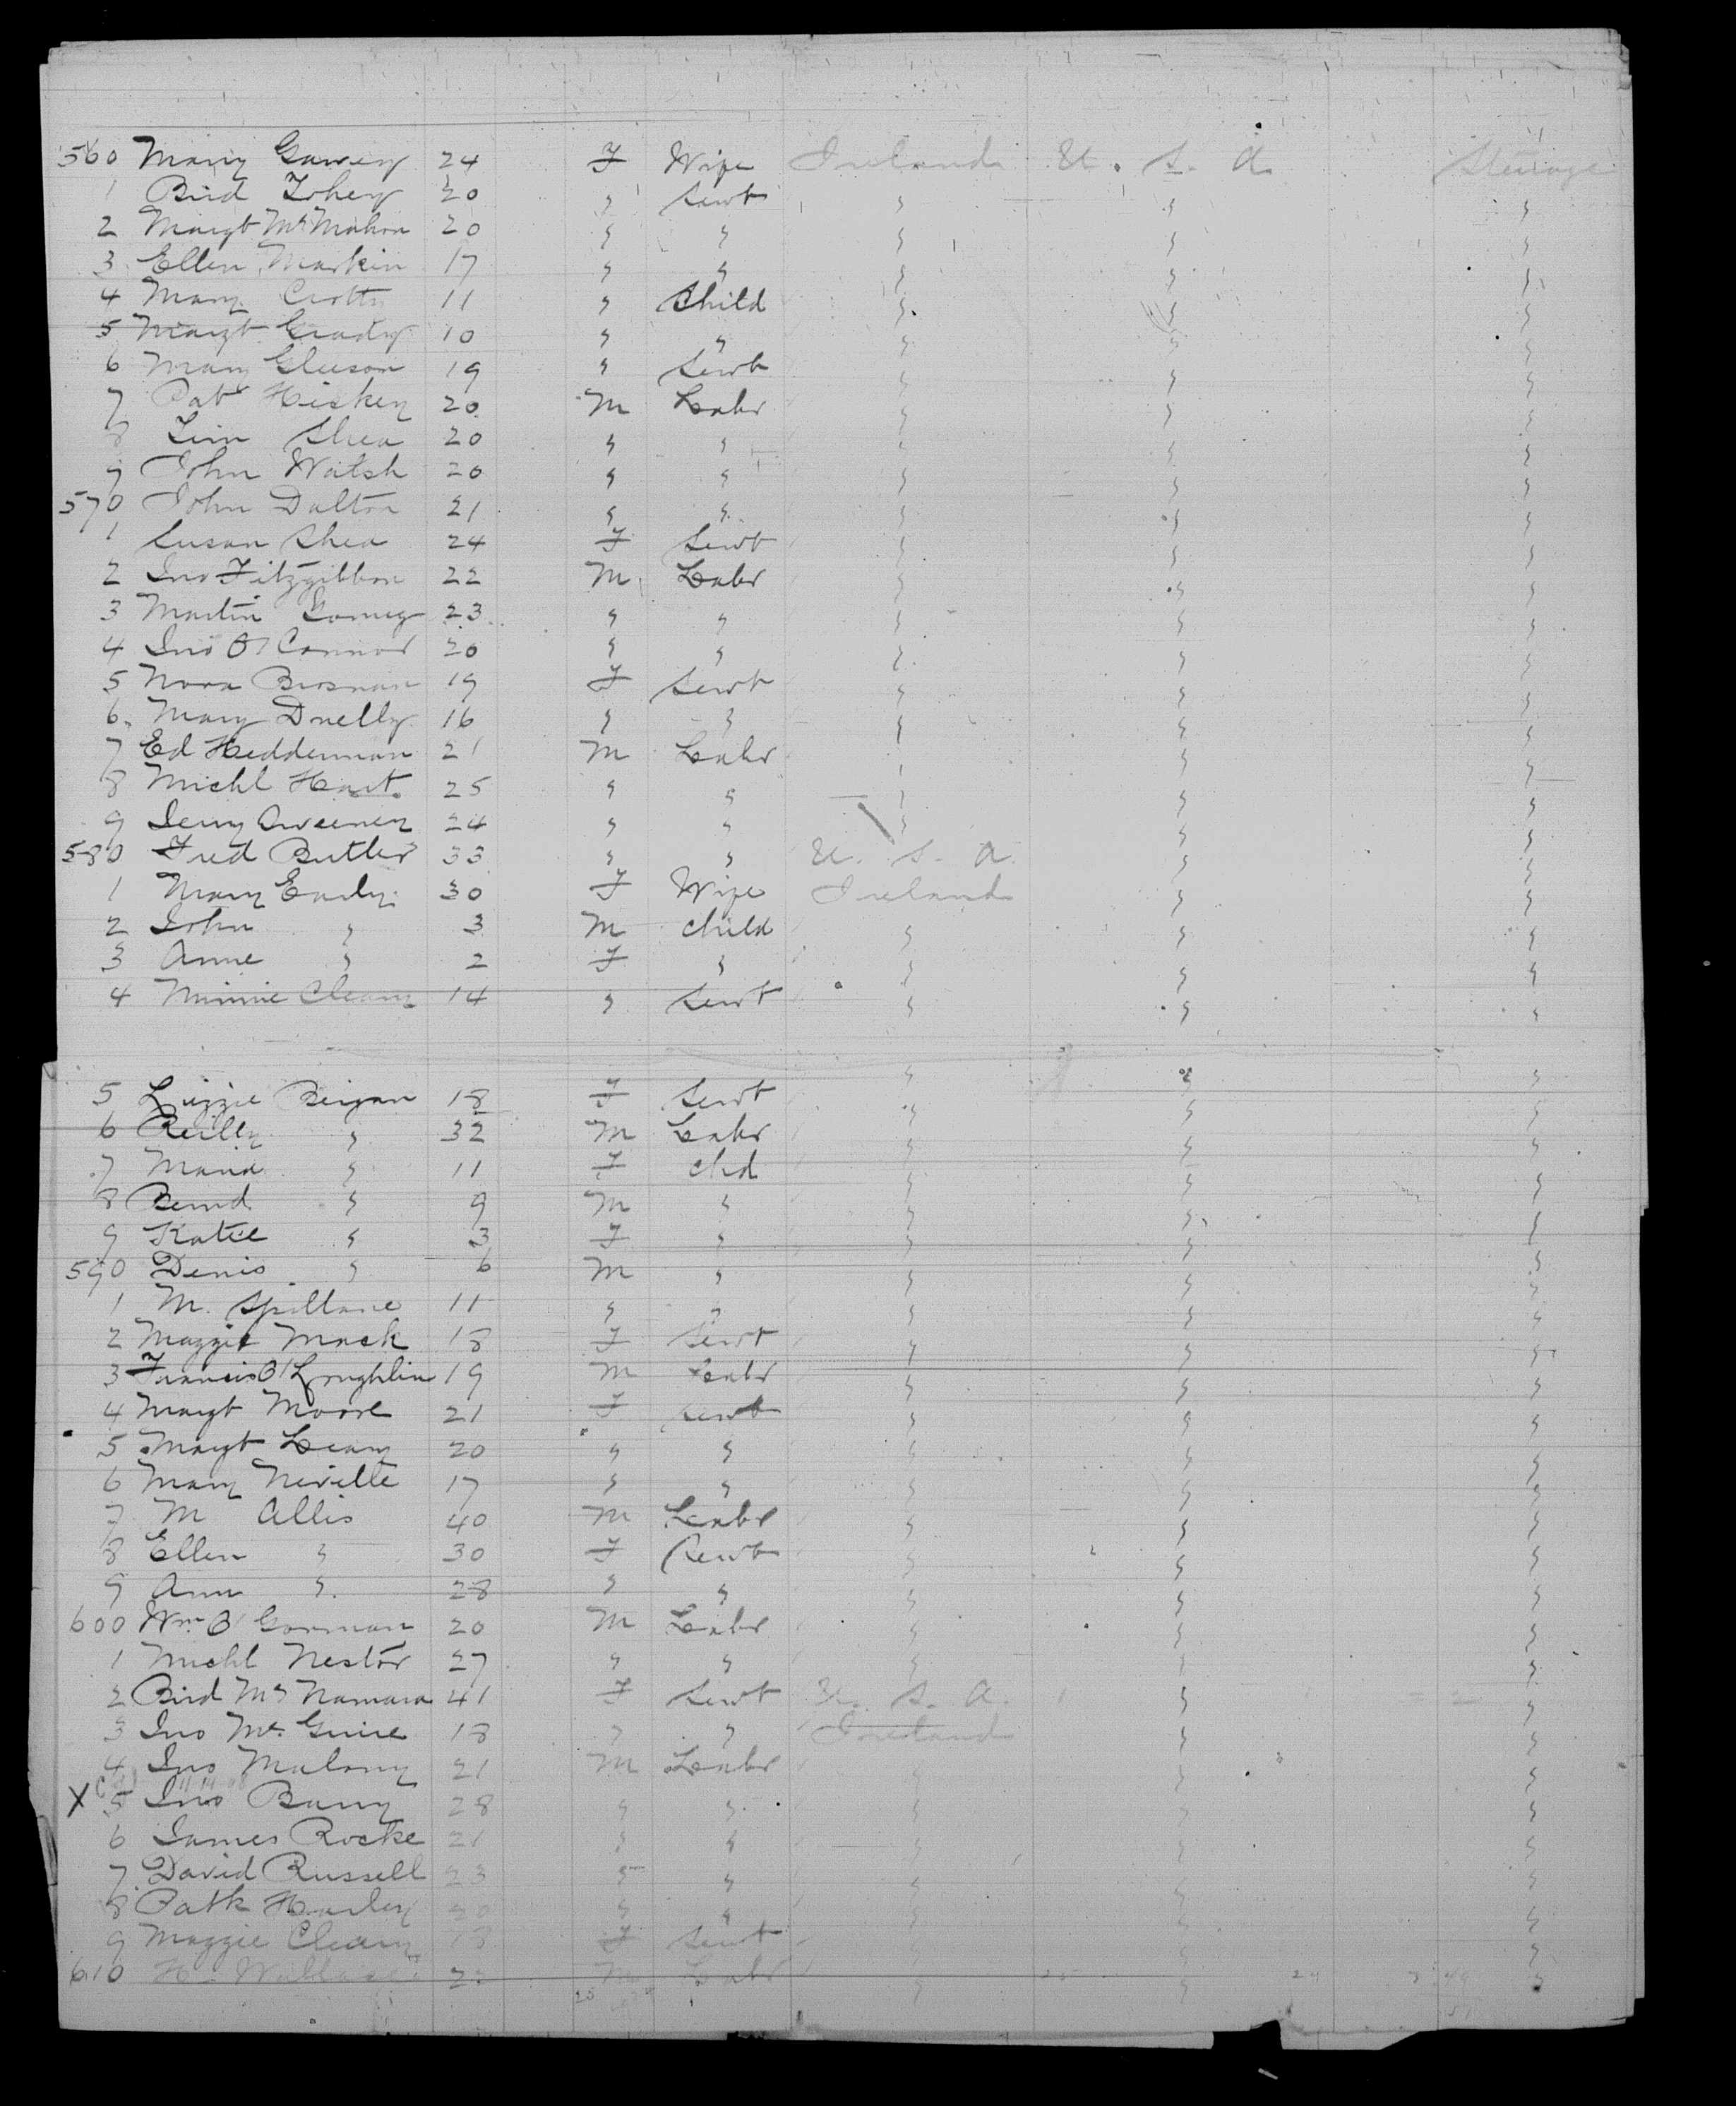 560 Mary Garvey 24 F Wife Ireland U. S. A. Steerage
1 Brid Fohey 20 " Servt " " "
2 Margt McMahon 20 " " " " "
3 Ellen Markin 17 " " " " "
4 Mary Crotty 11 " Child " " "
5 Margt Grady 10 " " " " "
6 Mary Gleeson 19 " Servt " " "
7 Pat Hickey 20 M Labr " " "
8 Tim Shea 20 " " " " "
9 John Walsh 20 " " " " "
570 John Dalton 21 " " " " "
1 Susan Shea 24 F Servt " " "
2 Jno Fitzgibbon 22 M Labr " " "
3 Martin 23 " " " " "
4 Jno O'Connor 20 " " " " "
5 Nora Brosnan 19 F Servt " " "
6 Mary Dnelly 16 " " " " "
7 Ed Hedderman 21 M Labr " " "
8 Michl Hart 25 " " " " "
9 Jerry Sweeney 24 " " " " "
580 Fred Butler 33 " " U. S. A. " "
1 Mary Early 30 F Wife Ireland " "
2 John " 3 M Child " " "
3 Anne " 2 F " " " "
4 Minnie Cleary 14 " Servt " " "
5 Lizzie Beigan 18 F Servt " " "
6 Reilly " 32 M Labr " " "
7 Maria " 11 F Chd " " "
8 Bernd " 9 M " " " "
9 Katie " 3 F " " " "
590 Denis " 6 M " " " "
1 M. Spillane 11 " " " " "
2 Maggie Mack 18 F Servt " " "
3 Francis O'Loughlin 19 M Labr " " "
4 Margt Moore 21 F Servt " " "
5 Margt Leary 20 " " " " "
6 Mary Neville 17 " " " " "
7 M Allis 40 M Labr " " "
8 Ellen " 30 F Servt " " "
9 Ann " 28 " " " " "
600 Wm O'Gorman 20 M Labr " " "
1 Michl Nestor 27 " " " " "
2 Brid McNamara 41 F Servt U. S. A. " "
3 Jno McGuire 18 " " Ireland " "
4 Jno Malony 21 M Labr " " "
X 5 Jno Barry 28 " " " " "
6 James Rocke 21 " " " " "
7 David Russell 23 " " " " "
8 Patk Hurley 20 " " " " "
9 Maggie Cleary 18 F Servt " " "
610 H. Wallace M Labr " " "